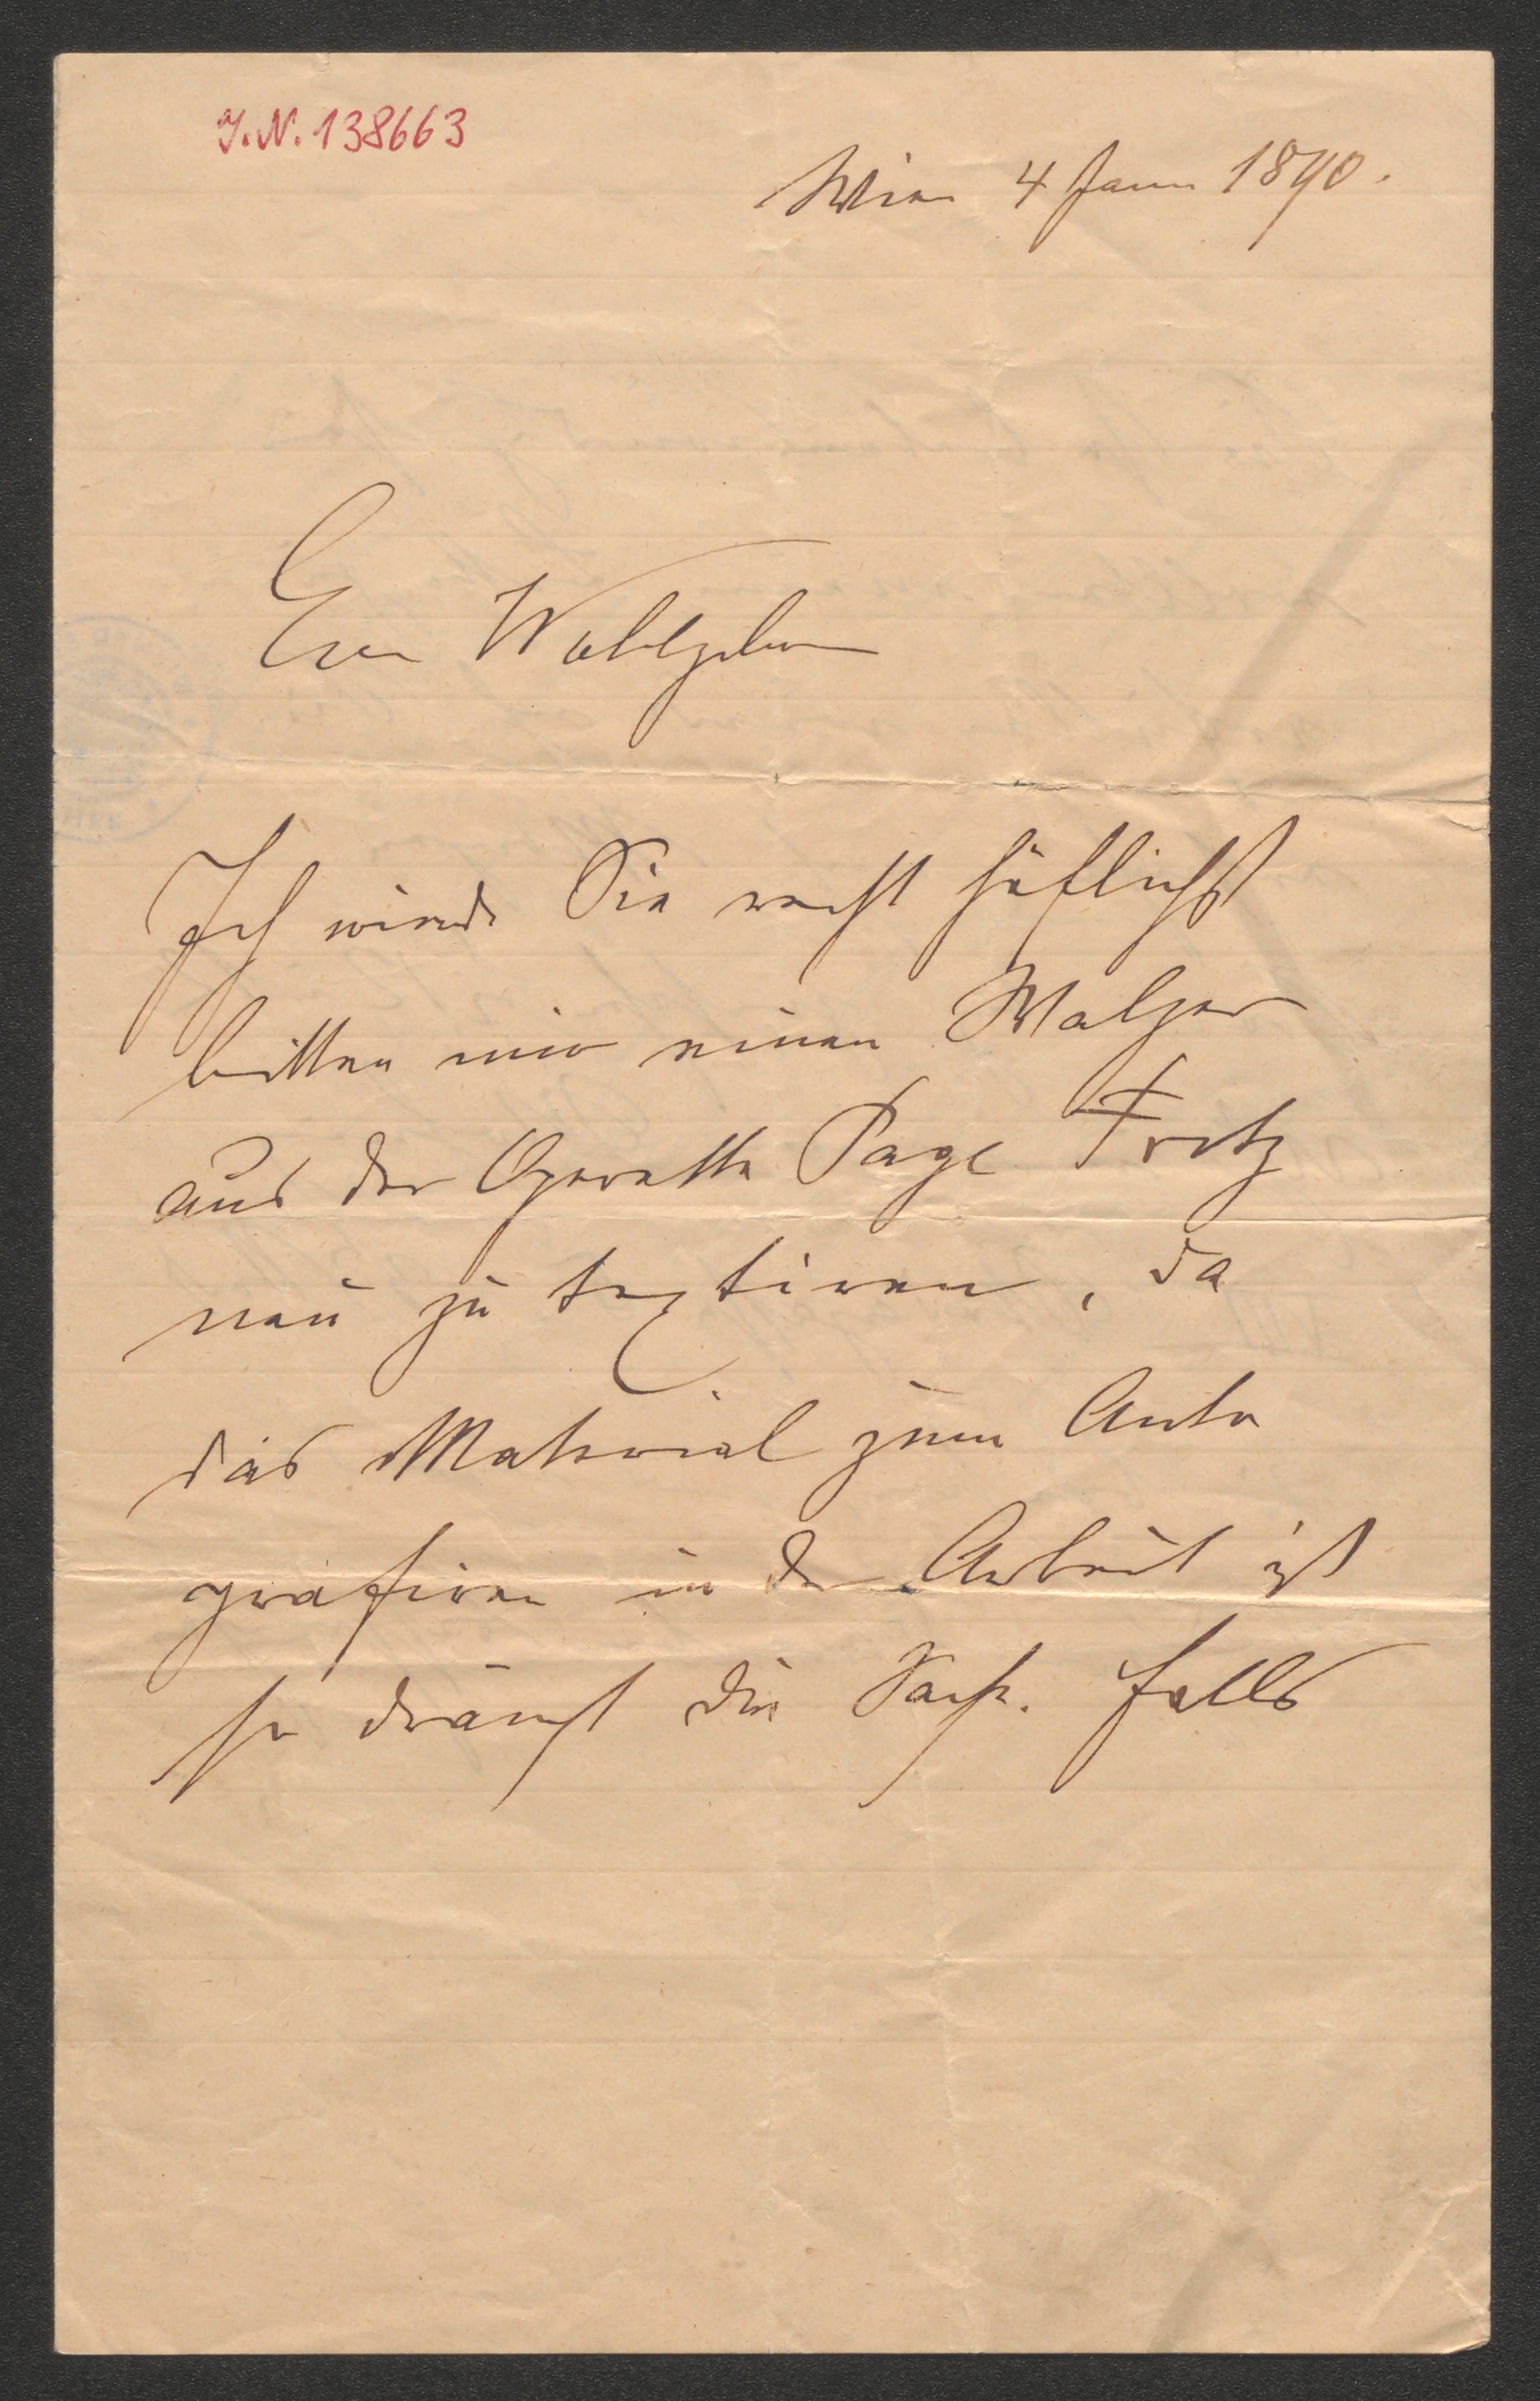 J.N. 138663
Wien 4 Jann 1890.
Euer Wohlgeborn
Ich würde Sie recht höflichst
bitten mir einen Walzer
aus der Operette Page Fritz
neu zu textiren, da
das Material zum Auto
grafiren in der Arbeit ist
so drängt die Sache. Falls